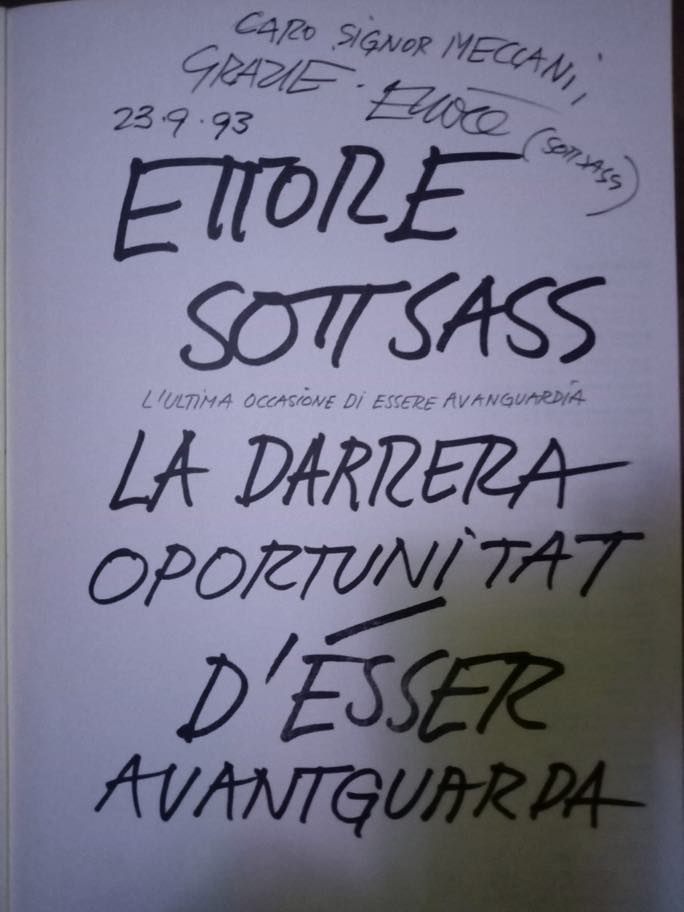 CARO SIGNOR MECCANI,
GRAZIE. Ettore
(SOTTSASS)
23.9.93
ETTORE
SOTTSASS
L'ULTIMA OCCASIONE DI ESSERE AVANGUARDIA
LA DARRERA
OPORTUNITAT
D'ÉSSER
AVANTGUARDA